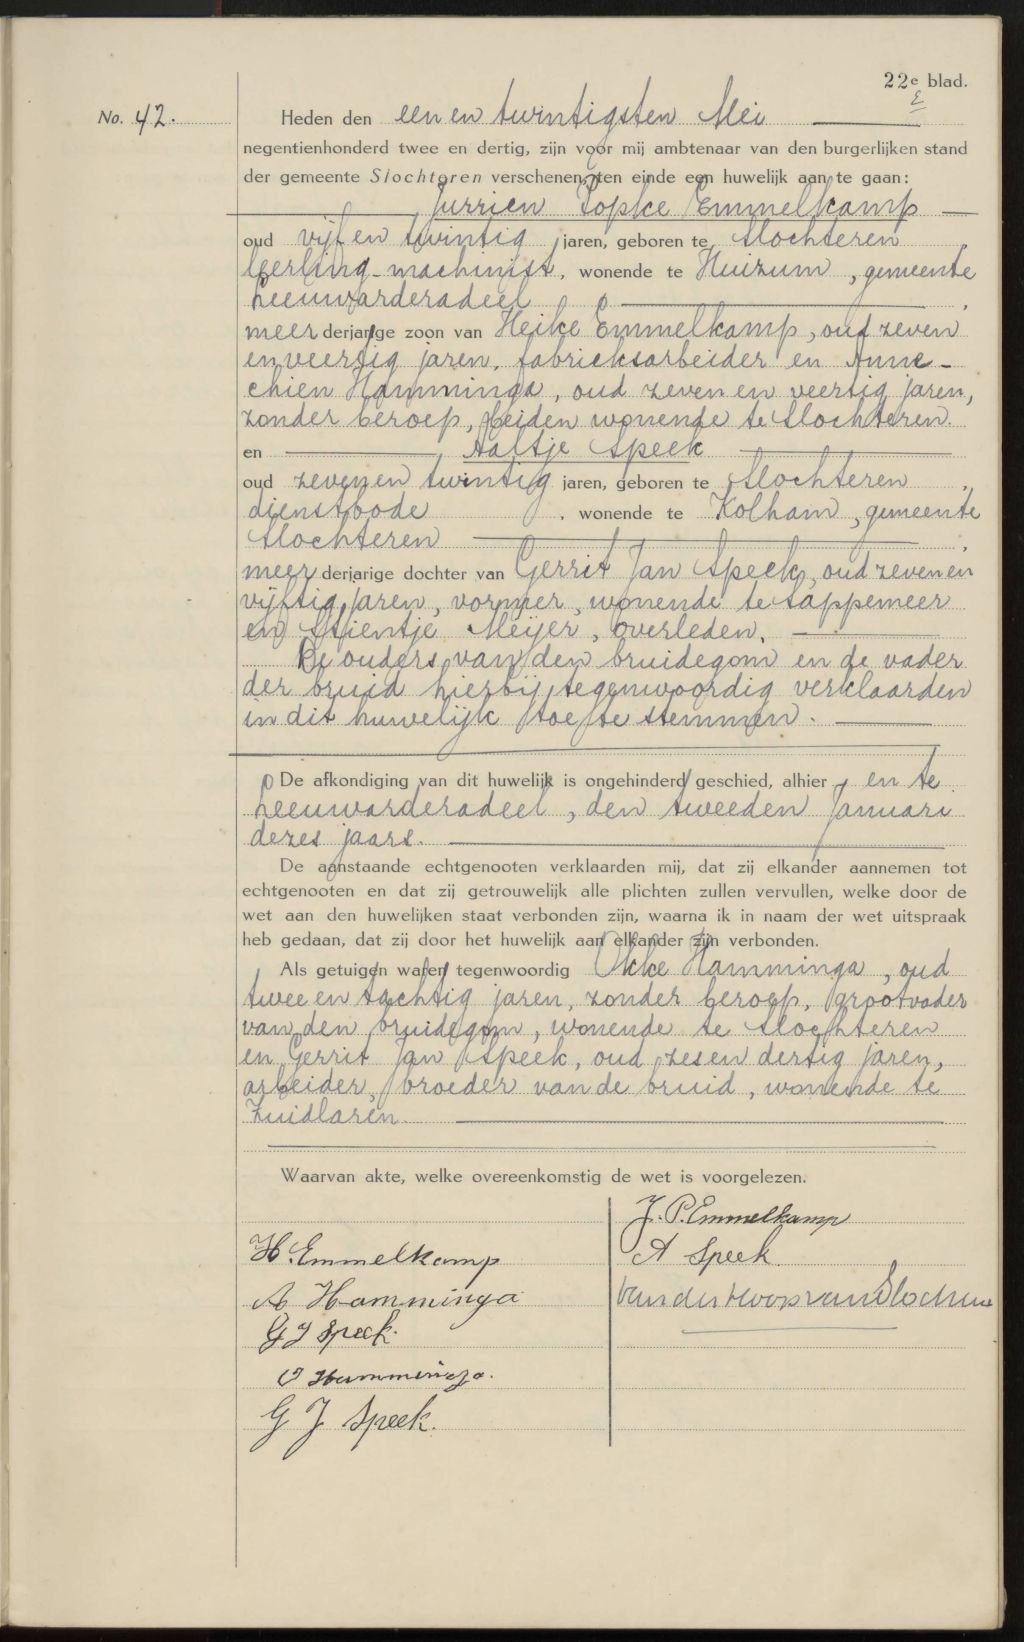 22e blad.
No. 42.
Heden den een en twintigsten Mei
negentienhonderd twee en dertig, zijn voor mij ambtenaar van den burgerlijken stand
der gemeente Slochteren verschenen, ten einde een huwelijk aan te gaan:
Jurrien Popke Emmelkamp
oud vijf en twintig jaren, geboren te Slochteren,
leerling-machinist, wonende te Huizum, gemeente
Leeuwarderadeel,
meerderjarige zoon van Heike Emmelkamp, oud zeven
en veertig jaren, fabrieksarbeider en Anne-
chien Hamminga, oud zeven en veertig jaren,
zonder beroep, beiden wonende te Slochteren.
en Aaltje Speek
oud zeven en twintig jaren, geboren te Slochteren,
dienstbode, wonende te Kolham, gemeente
Slochteren,
meerderjarige dochter van Gerrit Jan Speek, oud zeven en
vijftig jaren, vormer, wonende te Sappemeer
en Stientje Meijer, overleden.
De ouders van den bruidegom en de vader
der bruid hierbij tegenwoordig verklaarden
in dit huwelijk toe te stemmen.
De afkondiging van dit huwelijk is ongehinderd geschied, alhier en te
Leeuwarderadeel, den tweeden Januari
dezes jaars.
De aanstaande echtgenooten verklaarden mij, dat zij elkander aannemen tot
echtgenooten en dat zij getrouwelijk alle plichten zullen vervullen, welke door de
wet aan den huwelijken staat verbonden zijn, waarna ik in naam der wet uitspraak
heb gedaan, dat zij door het huwelijk aan elkander zijn verbonden.
Als getuigen waren tegenwoordig Okke Hamminga, oud
twee en tachtig jaren, zonder beroep, grootvader
van den bruidegom, wonende te Slochteren
en Gerrit Jan Speek, oud zes en dertig jaren,
arbeider, broeder van de bruid, wonende te
Zuidlaren.
Waarvan akte, welke overeenkomstig de wet is voorgelezen.
J. P. Emmelkamp
H. Emmelkamp
A Speek
A Hamminga
van der Hoop van Slochteren
G J Speek.
O Hamminga.
G J Speek.